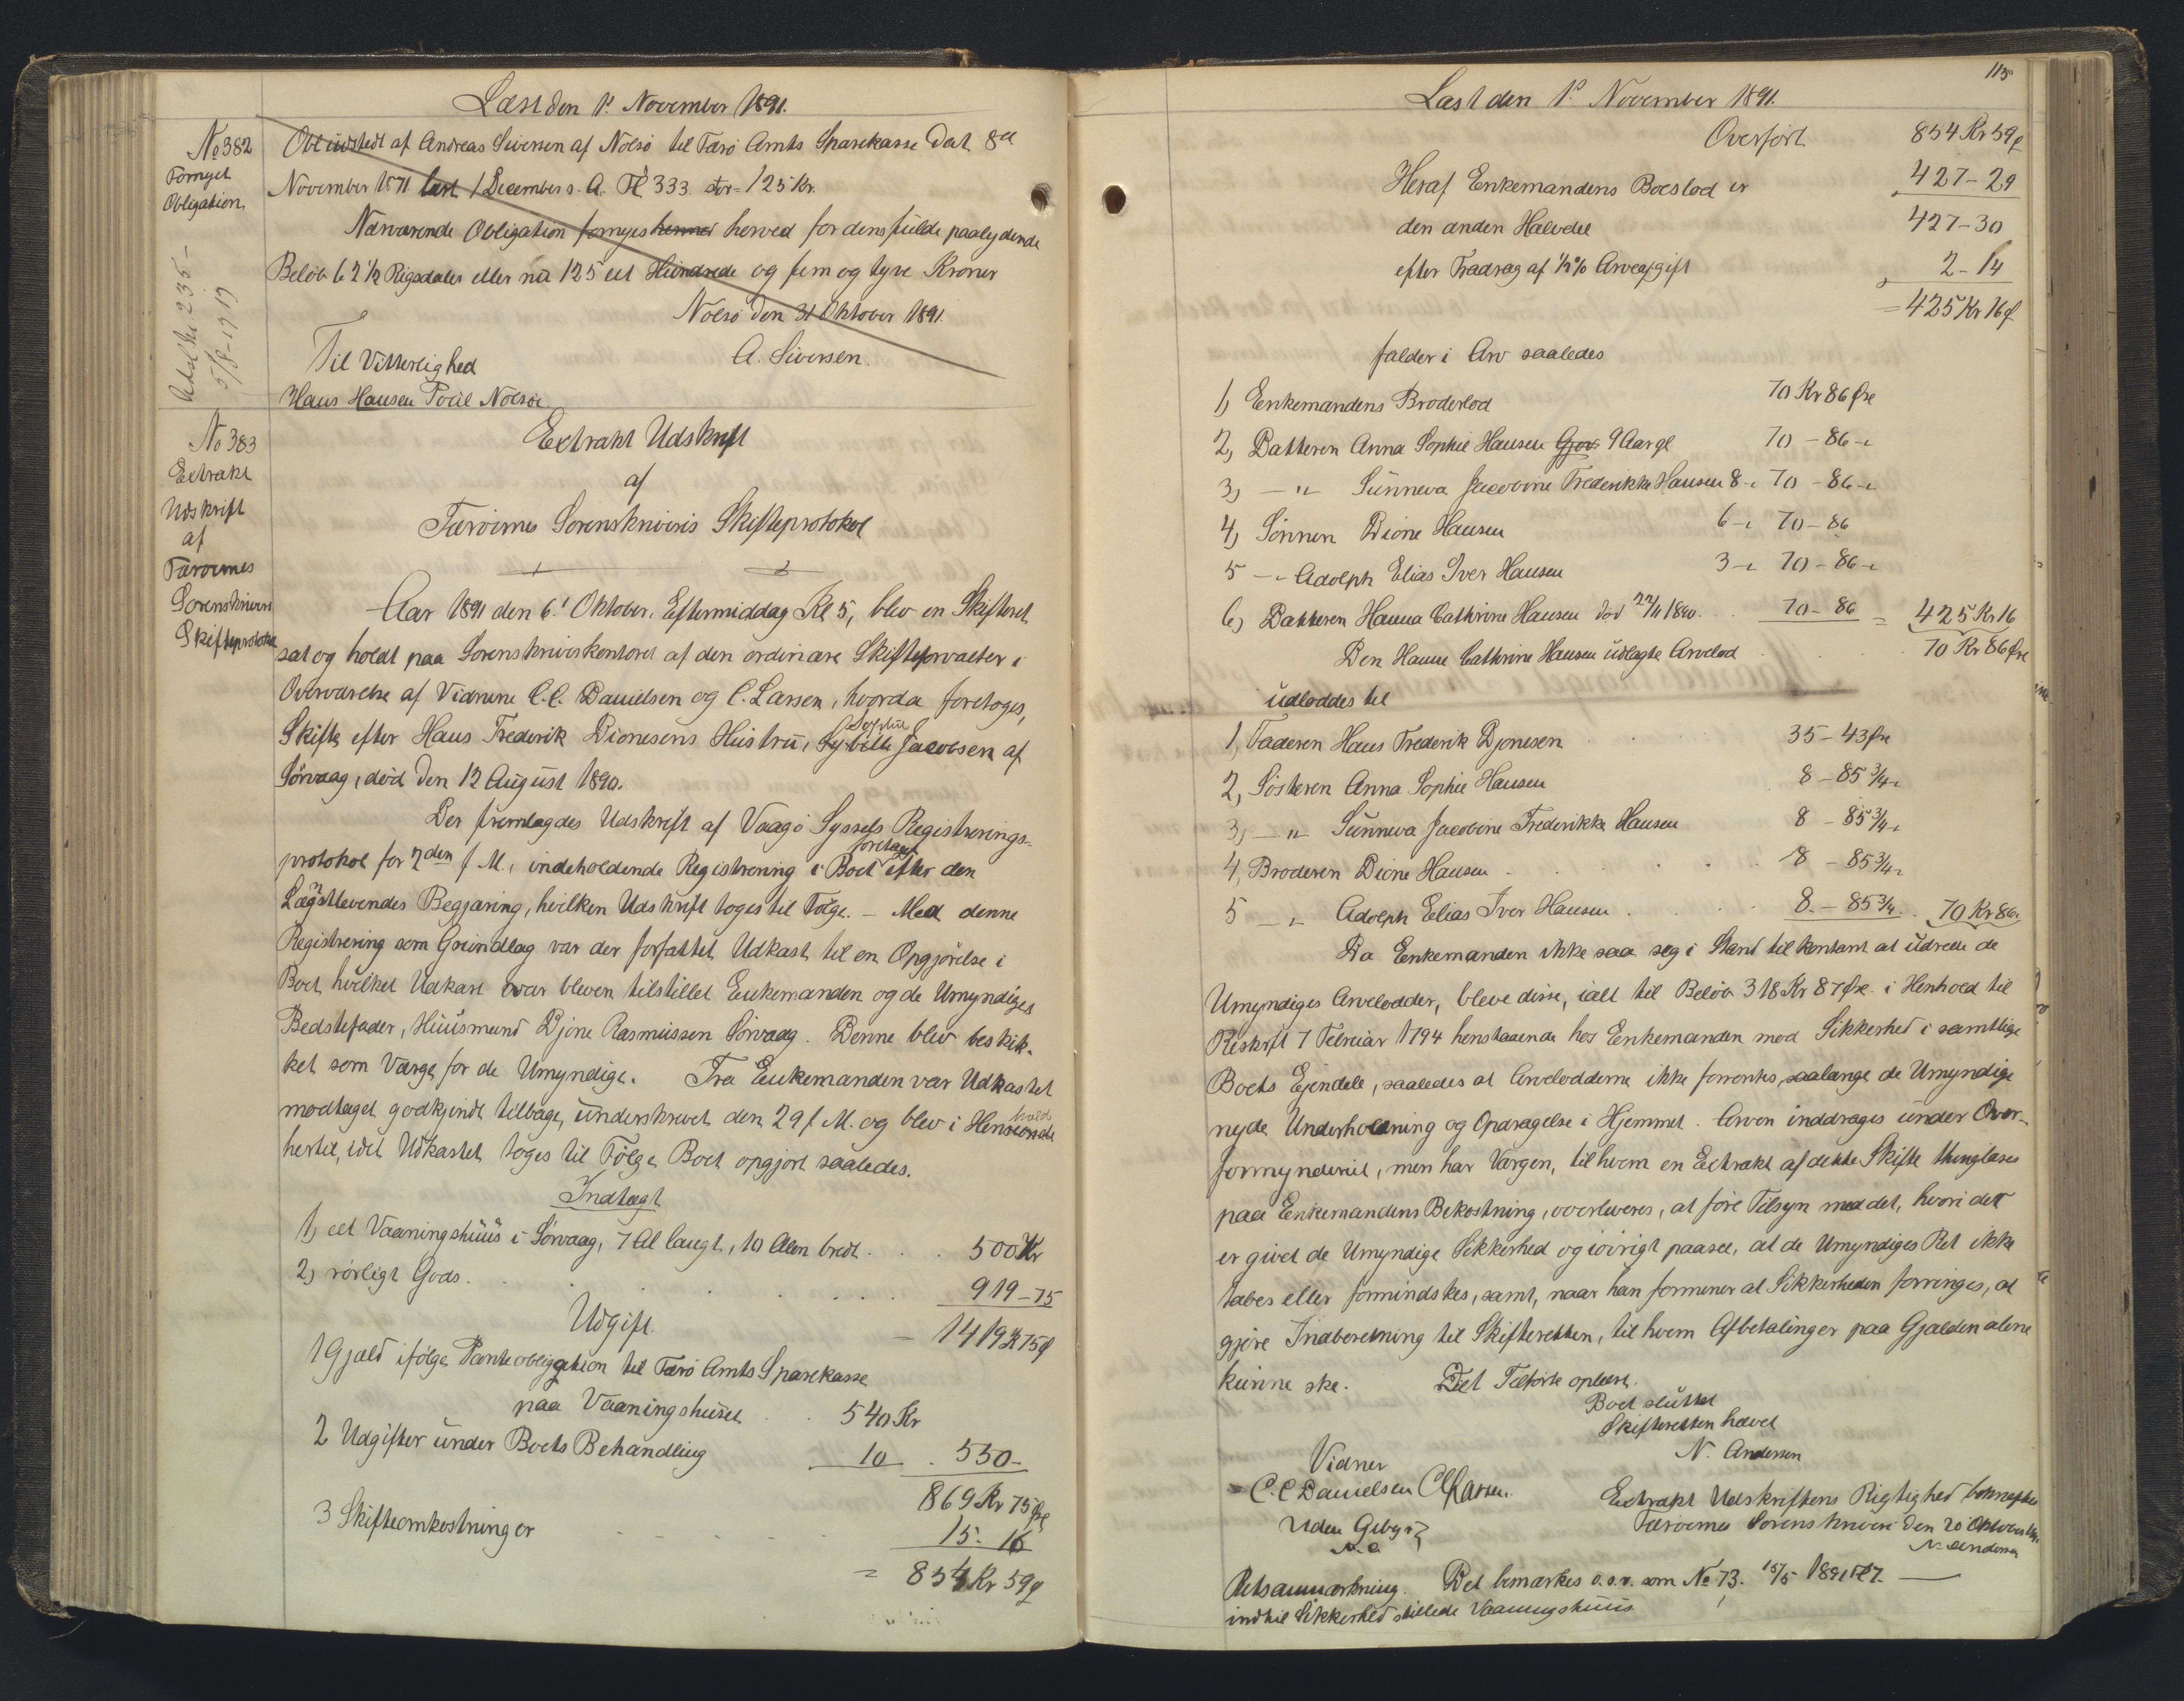 Læst den 1. November 1891.
No 382
Fornyet
Obligation
Obl udstedt af Andreas Siversen af Nolsö til Færö Amts Sparekasse Dat 8de
November 1871 læst 1 December s. A. Fl 333 stor = 125 Kr.
Nærværende Obligation fornyes herved for dens fulde paalydende
Belöb 62 1/2 Rigsdaler eller nu 125 eet Hundrede og fem og tyve Kroner
Nolsö den 31 Oktober 1891.
Til Vitterlighed
A. Siversen.
Hans Hansen Poul Nolsöe.
Udslettet 235 -
5/8-1919
No 383
Extrakt
Udskrift
af
Færöernes
Sorenskriveri
Skifteprotokol
Extrakt Udskrift
af
Færöernes Sorenskriveris Skifteprotokol
Aar 1891 den 6. Oktober, Eftermiddag Kl 5, blev en Skifteret
sat og holdt paa Sorenskriverkontoret af den ordinære Skifteforvalter i
Overværelse af Vidnerne C. C. Danielsen og C. Larsen, hvorda foretoges,
Skifte efter Hans Frederik Dionesens Hustru, Sybille Sophie Jacobsen af
Sörvaag, död den 12 August 1890.
Der fremlagdes Udskrift af Vaagö Syssels Registrerings-
protokol for 2den f. M., indeholdende Registrering i Boet foretaget efter den
Længstlevendes Begjæring, hvilken Udskrift toges til Fölge. - Med denne
Registrering som Grundlag var der forfattet Udkast til en Opgjörelse i
Boet hvilket Udkast var bleven tilstillet Enkemanden og de Umyndiges
Bedstefader, Huusmand Djone Rasmussen Sörvaag. Denne blev beskik-
ket som Værge for de Umyndige. Fra Enkemanden var Udkastet
modtaget godkjendt tilbage, underskrevet den 29 f. M. og blev i Henhold
hertil, idet Udkastet toges til Fölge Boet opgjort saaledes.
Indtægt
1, eet Vaaningshuus i Sörvaag, 7 Al langt, 10 Alen bredt . . . 500 Kr
2, rörligt Gods . . . 919-75
Udgift.
- 1419 Kr 75 ø
1 Gjæld ifölge Panteobligation til Færö Amts Sparekasse
paa Vaaningshuset . . 540 Kr
2 Udgifter under Boets Behandling 10 . 550-
869 Kr 75 Øre
3 Skifteomkostninger - - - - 15. 16
= 854 Kr 59 ø
115
Læst den 1. November 1891.
Overfört 854 Kr 59 ø
Heraf Enkemandens Boeslod er 427-29
den anden Halvdel 427-30
efter Fradrag af 1/2 % Arveafgift 2-14
= 425 Kr 16 ø
falder i Arv saaledes
1, Enkemandens Broderlod 70 Kr 86 Øre
2, Datteren Anna Sophie Hansen 9 Aar gl 70 - 86 -
3, - " Sunneva Jacobine Frederikke Hansen 8 - 70 - 86 -
4, Sönnen Dione Hansen 6 - 70 - 86
5 - " Adolph Elias Iver Hansen 3 - 70 - 86 -
6, Datteren Hanna Cathrine Hansen död 22/11 1890 . . 70 - 86 = 425 Kr 16
Den Hanne Cathrine Hansen udlagte Arvelod . . . 70 Kr 86 Øre
udloddes til
1, Faderen Hans Frederik Djonesen . . . 35-43 Øre
2, Sösteren Anna Sophie Hansen 8-85 3/4 -
3, - " Sunneva Jacobine Frederikke Hansen 8-85 3/4 -
4, Broderen Dione Hansen . . . 8-85 3/4 -
5 - " Adolph Elias Iver Hansen . . . 8-85 3/4 . 70 Kr 86
Da Enkemanden ikke saa seg i Stand til kontant at udrede de
Umyndiges Arvelodder, bleve disse, ialt til Belöb 318 Kr 87 Øre i Henhold til
Reskript 7 Februar 1794 henstaaende hos Enkemanden mod Sikkerhed i samtlige
Boets Ejendele, saaledes at Arvelodderne ikke forrentes, saalænge de Umyndige
nyde Underholdning og Opdragelse i Hjemmet. Arven inddrages under Over-
formynderiet, men har Værgen, til hvem en Extrakt af dette Skifte thinglæses
paa Enkemandens Bekostning, overleveres, at före Tilsyn med det, hvori der
er givet de Umyndige Sikkerhed og iövrigt paasee, at de Umyndiges Ret ikke
tabes eller formindskes, samt, naar han formener at Sikkerheden forringes, at
gjöre Indberetning til Skifteretten, til hvem Afbetalinger paa Gjælden alene
kunne ske. Det Tilförte oplæst.
Boet sluttet
Skifteretten hævet
N. Andersen
Vidner
C. C Danielsen C Larsen.
Extrakt Udskriftens Rigtighed bekræftes
Færöernes Sorenskriveri den 20 Oktober 1891.
N. Andersen
Uden Gebyr
N. A
Retsanmærkning. Det bemærkes o. s. v. som No 73. 15/5 1891
indtil Sikkerhed stillede Vaaningshuus